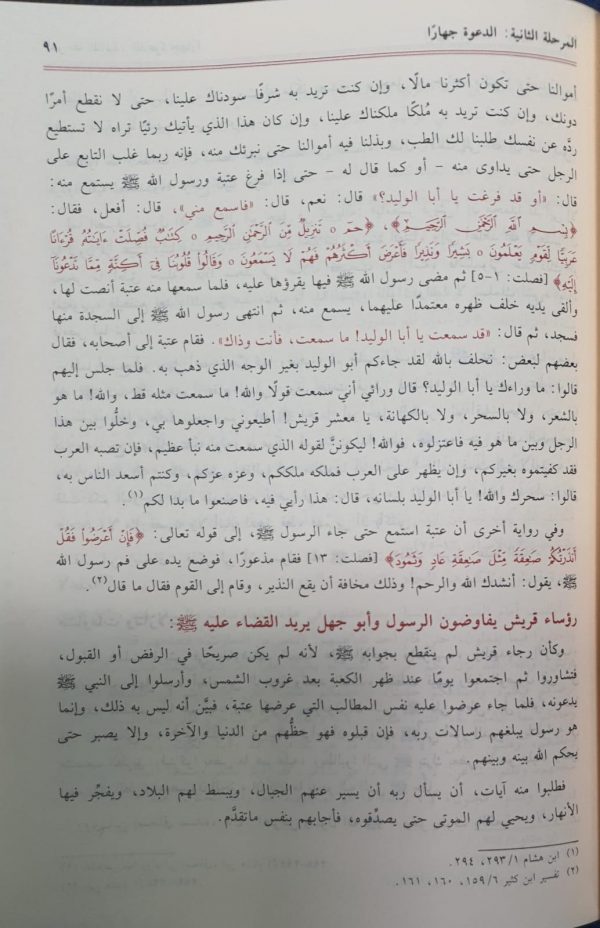 المرحلة الثانية: الدعوة جهارًا
٩١
أموالنا حتى تكون أكثرنا مالًا، وإن كنت تريد به شرفًا سودناك علينا، حتى لا نقطع أمرًا
دونك، وإن كنت تريد به مُلكًا ملكناك علينا، وإن كان هذا الذي يأتيك رئيًا تراه لا تستطيع
ردّه عن نفسك طلبنا لك الطب، وبذلنا فيه أموالنا حتى نبرئك منه، فإنه ربما غلب التابع على
الرجل حتى يداوى منه - أو كما قال له - حتى إذا فرغ عتبة ورسول الله ﷺ يستمع منه:
قال: «أو قد فرغت يا أبا الوليد؟» قال: نعم، قال: «فاسمع مني»، قال: أفعل، فقال:
﴿بِسْمِ ٱللَّهِ ٱلرَّحْمَٰنِ ٱلرَّحِيمِ﴾، ﴿حمٓ ۝ تَنزِيلٌ مِّنَ ٱلرَّحْمَٰنِ ٱلرَّحِيمِ ۝ كِتَٰبٌ فُصِّلَتْ ءَايَٰتُهُۥ قُرْءَانًا
عَرَبِيًّا لِّقَوْمٍ يَعْلَمُونَ ۝ بَشِيرًا وَنَذِيرًا فَأَعْرَضَ أَكْثَرُهُمْ فَهُمْ لَا يَسْمَعُونَ ۝ وَقَالُوا۟ قُلُوبُنَا فِىٓ أَكِنَّةٍ مِّمَّا تَدْعُونَآ
إِلَيْهِ﴾ [فصلت: ١-٥] ثم مضى رسول الله ﷺ فيها يقرؤها عليه، فلما سمعها منه عتبة أنصت لها،
وألقى يديه خلف ظهره معتمدًا عليهما، يسمع منه، ثم انتهى رسول الله ﷺ إلى السجدة منها
فسجد، ثم قال: «قد سمعت يا أبا الوليد! ما سمعت، فأنت وذاك». فقام عتبة إلى أصحابه، فقال
بعضهم لبعض: نحلف بالله لقد جاءكم أبو الوليد بغير الوجه الذي ذهب به. فلما جلس إليهم
قالوا: ما وراءك يا أبا الوليد؟ قال ورائي أني سمعت قولًا والله! ما سمعت مثله قط، والله! ما هو
بالشعر، ولا بالسحر، ولا بالكهانة، يا معشر قريش! أطيعوني واجعلوها بي، وخلُّوا بين هذا
الرجل وبين ما هو فيه فاعتزلوه، فوالله! ليكوننَّ لقوله الذي سمعت منه نبأ عظيم، فإن تصبه العرب
فقد كفيتموه بغيركم، وإن يظهر على العرب فملكه ملككم، وعزه عزكم، وكنتم أسعد الناس به،
قالوا: سحرك والله! يا أبا الوليد بلسانه، قال: هذا رأيي فيه، فاصنعوا ما بدا لكم(١).
وفي رواية أخرى أن عتبة استمع حتى جاء الرسول ﷺ، إلى قوله تعالى: ﴿فَإِنْ أَعْرَضُوا۟ فَقُلْ
أَنذَرْتُكُمْ صَٰعِقَةً مِّثْلَ صَٰعِقَةِ عَادٍ وَثَمُودَ﴾ [فصلت: ١٣] فقام مذعورًا، فوضع يده على فم رسول الله
ﷺ، يقول: أنشدك الله والرحم! وذلك مخافة أن يقع النذير، وقام إلى القوم فقال ما قال(٢).
رؤساء قريش يفاوضون الرسول وأبو جهل يريد القضاء عليه ﷺ:
وكأن رجاء قريش لم ينقطع بجوابه ﷺ، لأنه لم يكن صريحًا في الرفض أو القبول،
فتشاوروا ثم اجتمعوا يومًا عند ظهر الكعبة بعد غروب الشمس، وأرسلوا إلى النبي ﷺ
يدعونه، فلما جاء عرضوا عليه نفس المطالب التي عرضها عتبة، فبيَّن أنه ليس به ذلك، وإنما
هو رسول يبلغهم رسالات ربه، فإن قبلوه فهو حظُّهم من الدنيا والآخرة، وإلا يصبر حتى
يحكم الله بينه وبينهم.
فطلبوا منه آيات، أن يسأل ربه أن يسير عنهم الجبال، ويبسط لهم البلاد، ويفجِّر فيها
الأنهار، ويحيي لهم الموتى حتى يصدِّقوه، فأجابهم بنفس ماتقدَّم.
(١) ابن هشام ٢٩٣/١، ٢٩٤.
(٢) تفسير ابن كثير ١٥٩/٦، ١٦٠، ١٦١.